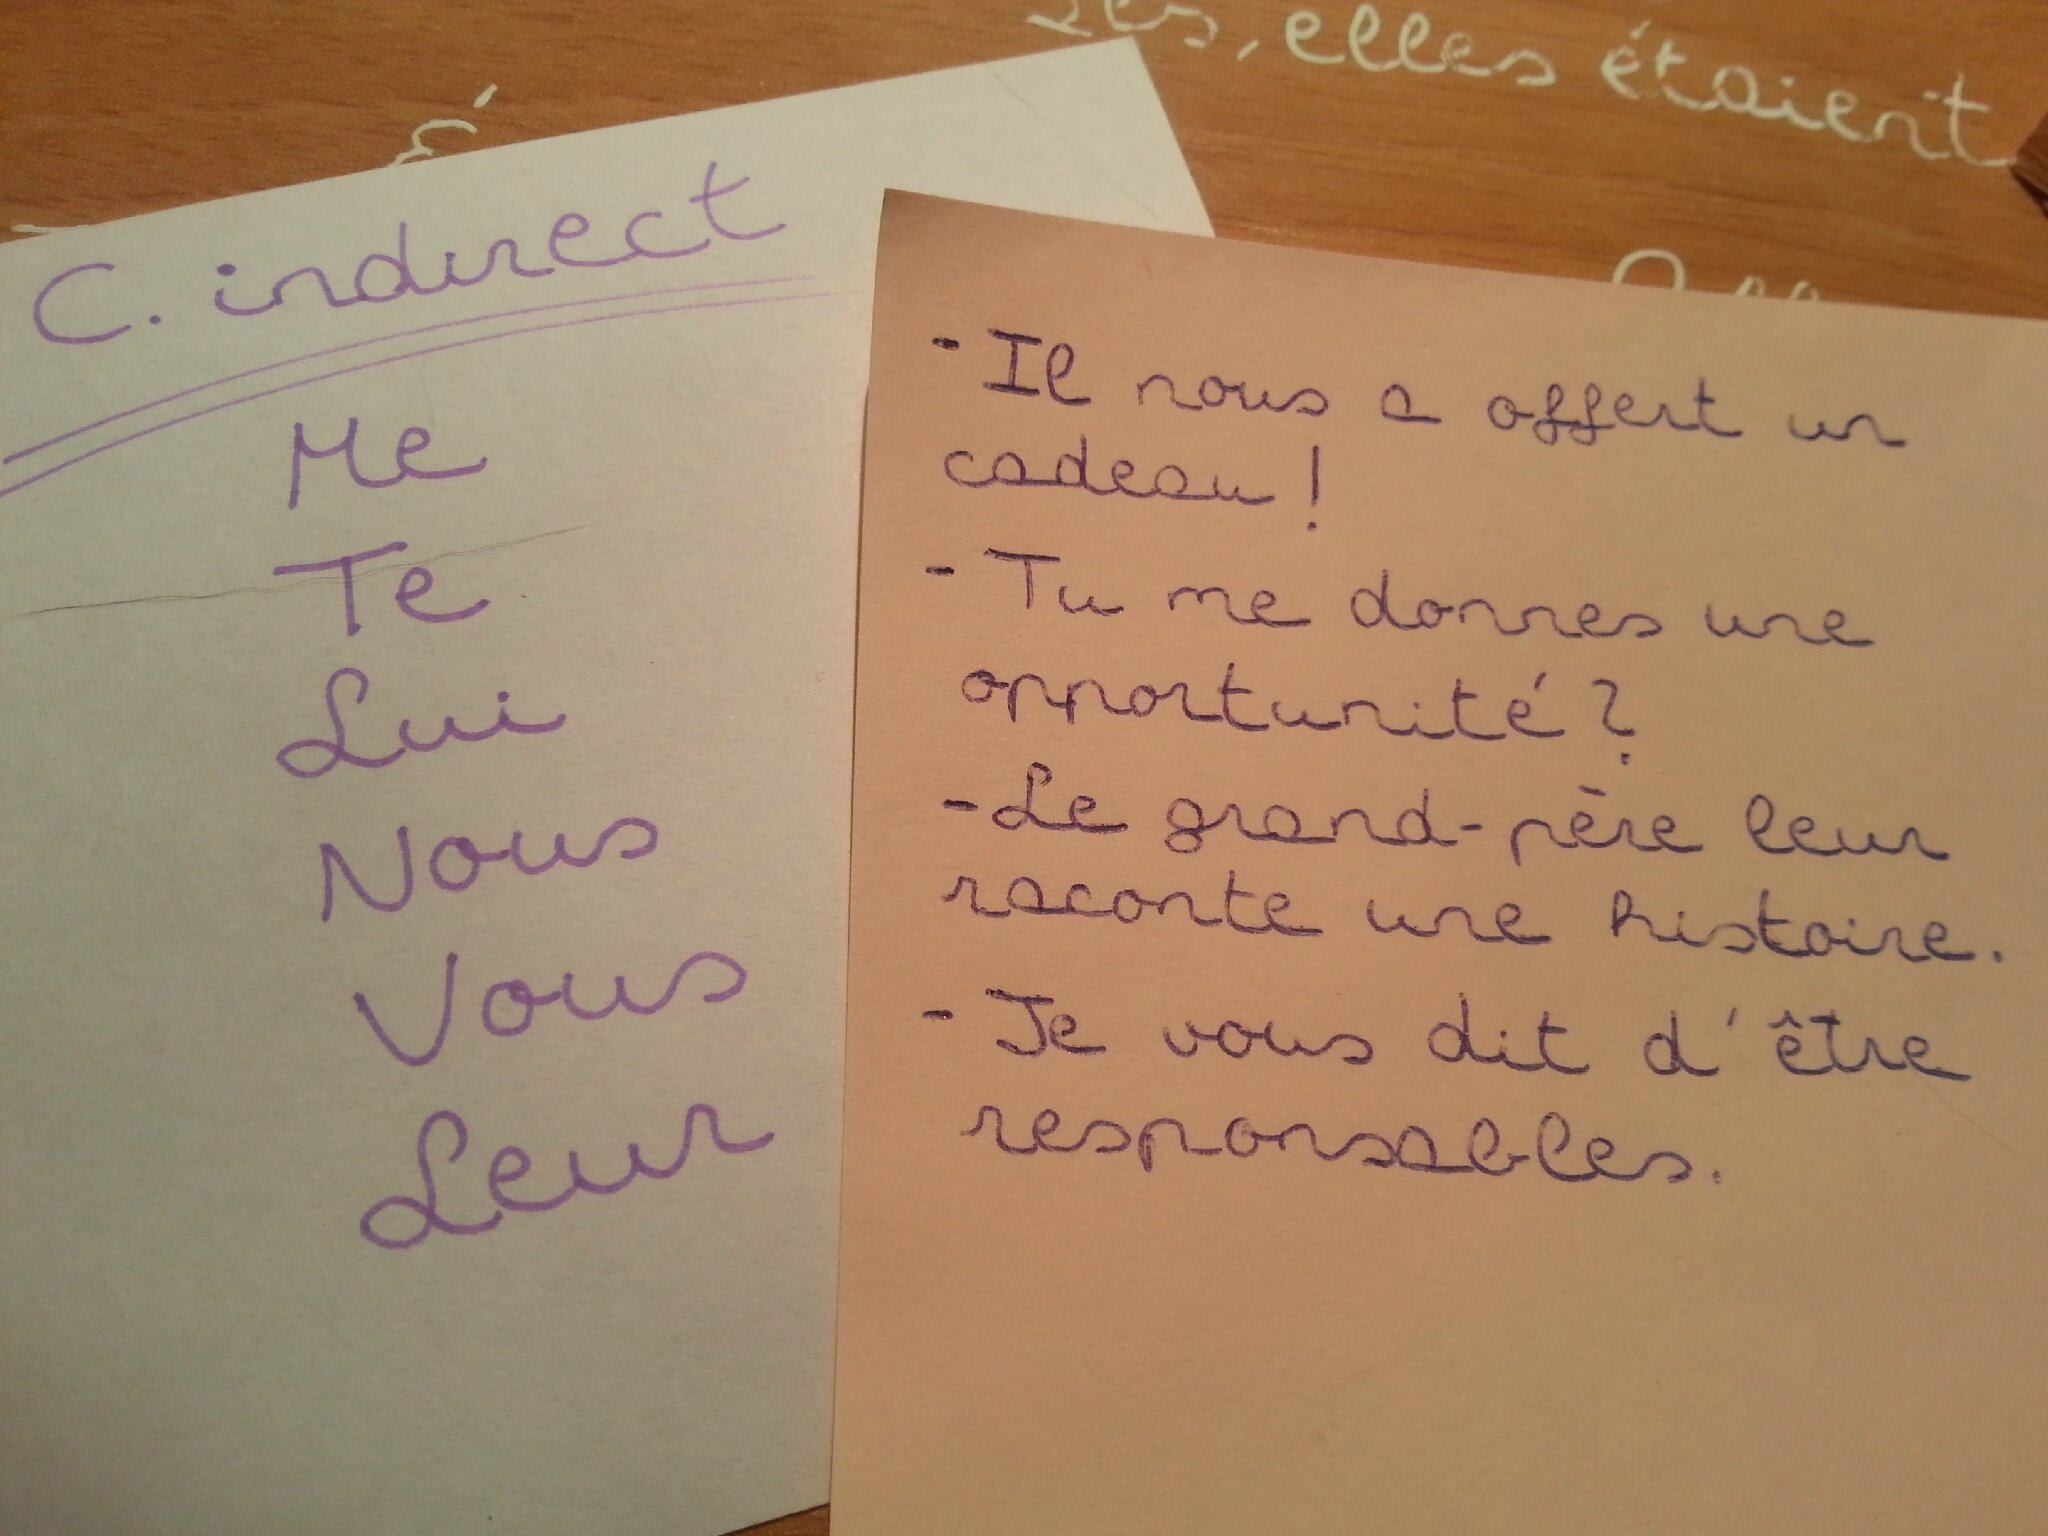 elles étaient
C. indirect
Me
Te
Lui
Nous
Vous
Leur
- Il nous a offert un
cadeau !
- Tu me donnes une
opportunité ?
- Le grand-père leur
raconte une histoire.
- Je vous dit d'être
responsables.